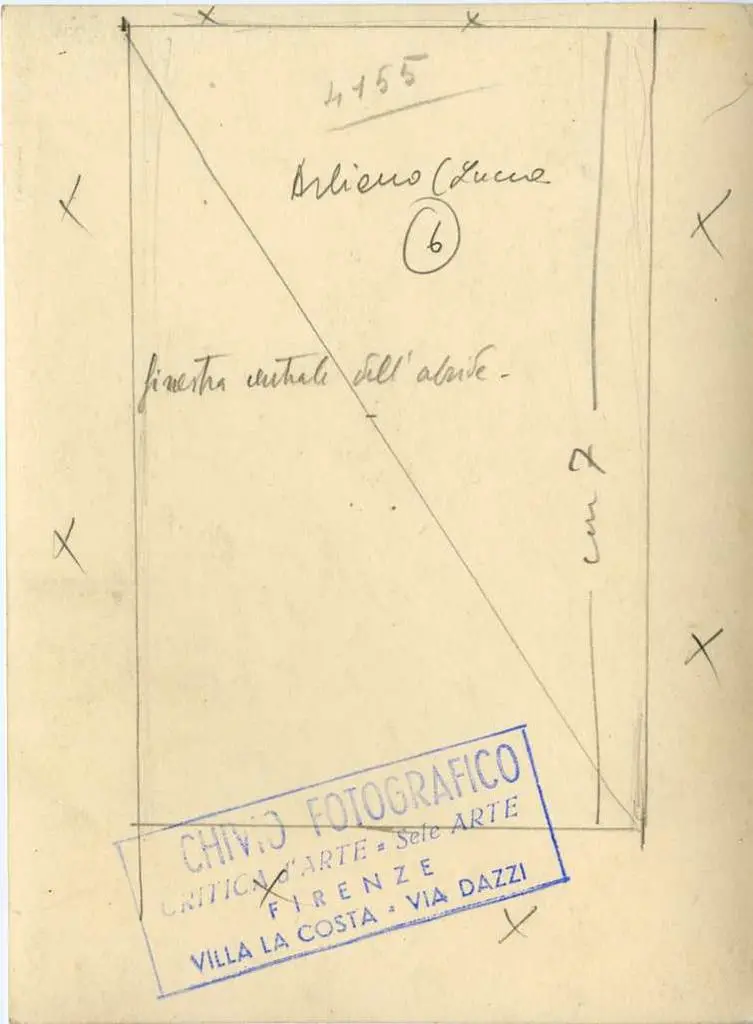 4155
Arliano (Lucca
6
finestra centrale dell'abside -
cm 7
CHIVIO FOTOGRAFICO
CRITICA d'ARTE = Sele ARTE
FIRENZE
VILLA LA COSTA = VIA DAZZI